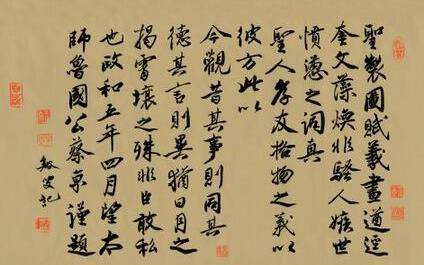 聖製圖賦羲畫道逕
奎文藻煥非騷人嫉世
憤懣之詞真
聖人孝友格物之義以
彼方此以
今觀昔其事則同其
德其言則異猶日月之
揭霄壤之殊非臣敢私
也政和五年四月望太
師魯國公蔡京謹題
敏叟記